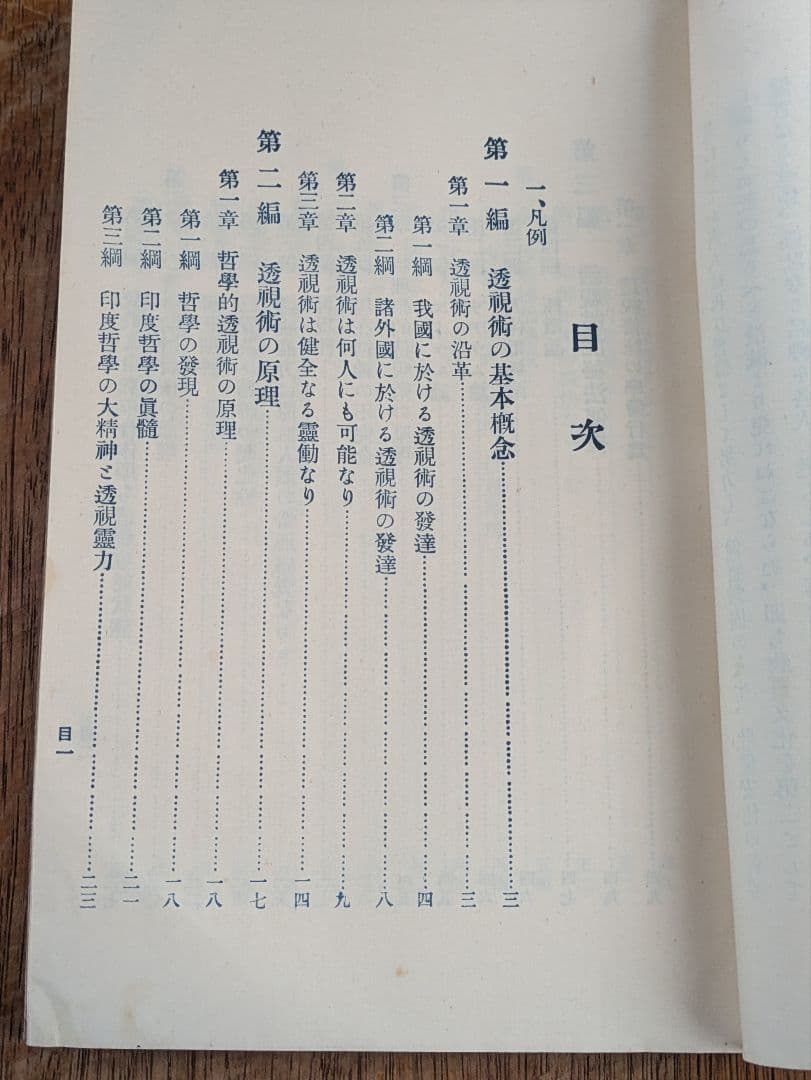 目次
一、凡例
第一編 透視術の基本概念…………三
第一章 透視術の沿革…………三
第一綱 我國に於ける透視術の發達…………四
第二綱 諸外國に於ける透視術の發達…………八
第二章 透視術は何人にも可能なり…………九
第三章 透視術は健全なる靈働なり…………一四
第二編 透視術の原理…………一七
第一章 哲學的透視術の原理…………一八
第一綱 哲學の發現…………一八
第二綱 印度哲學の眞髓…………二一
第三綱 印度哲學の大精神と透視靈力…………二三
目一